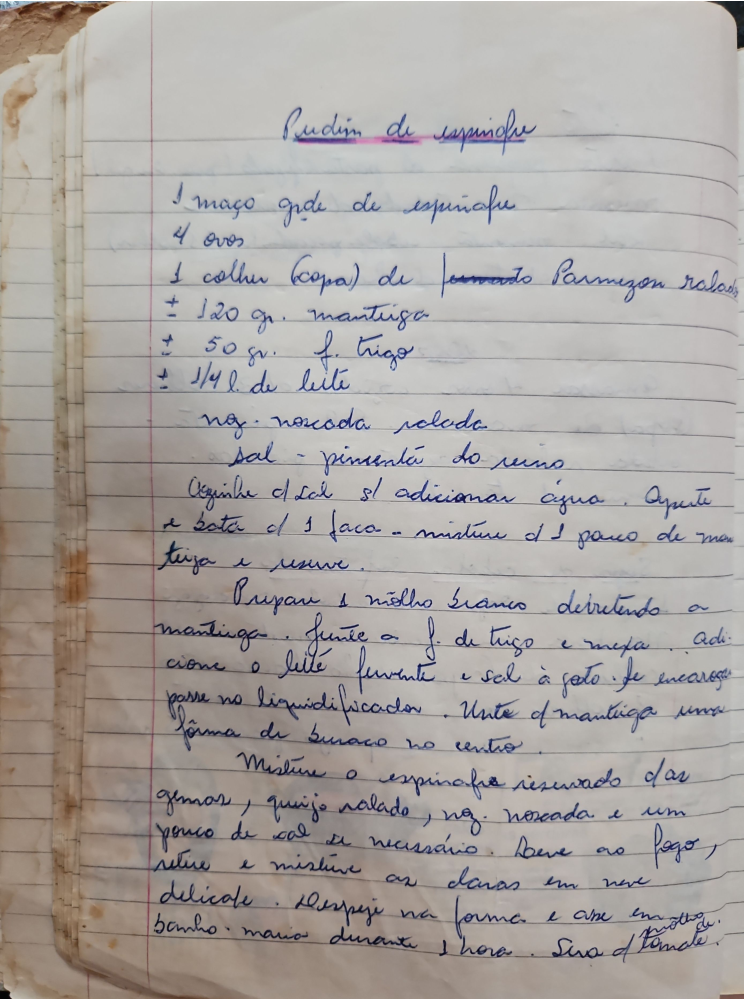 Pudim de espinafre
1 maço gde de espinafre
4 ovos
1 colher (sopa) de Parmezon ralado
± 120 gr. manteiga
± 50 gr. f. trigo
± 1/4 l. de leite
noz. noscada ralada
sal - pimenta do reino
Cozinhe c/ sal s/ adicionar água. Aperte
e bata c/ 1 faca - misture c/ 1 pouco de man
teiga e reserve.
Prepare 1 môlho branco derretendo a
manteiga. Junte a f. de trigo e mexa. Adi-
cione o leite fervente e sal à gosto. Se encaroçar
passe no liquidificador. Unte c/ manteiga uma
fôrma de buraco no centro.
Misture o espinafre reservado c/ as
gemas, queijo ralado, noz. noscada e um
pouco de sal se necessário. Leve ao fogo,
retire e misture as claras em neve
delicate. Despeje na forma e asse em
banho-maria durante 1 hora. Sirva c/ môlho de tomate.